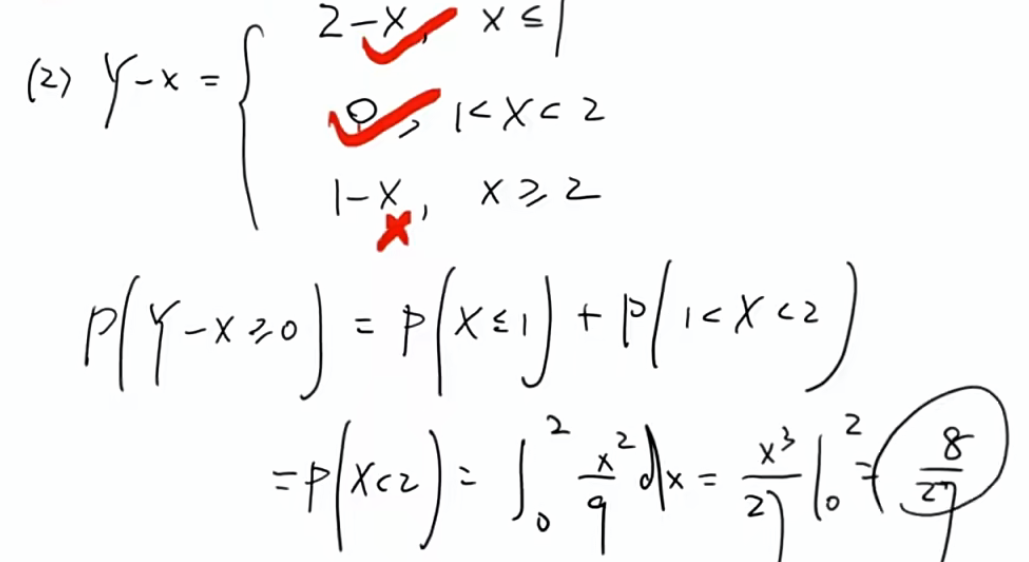 (2) Y-x = { 2-x, x ≤ 1
0, 1< X < 2
1-x, x ≥ 2
P(Y-x≥0) = P(X≤1) + P(1<X<2)
=P(X<2) = ∫₀² x²/9 dx = x³/27 |₀² = 8/27